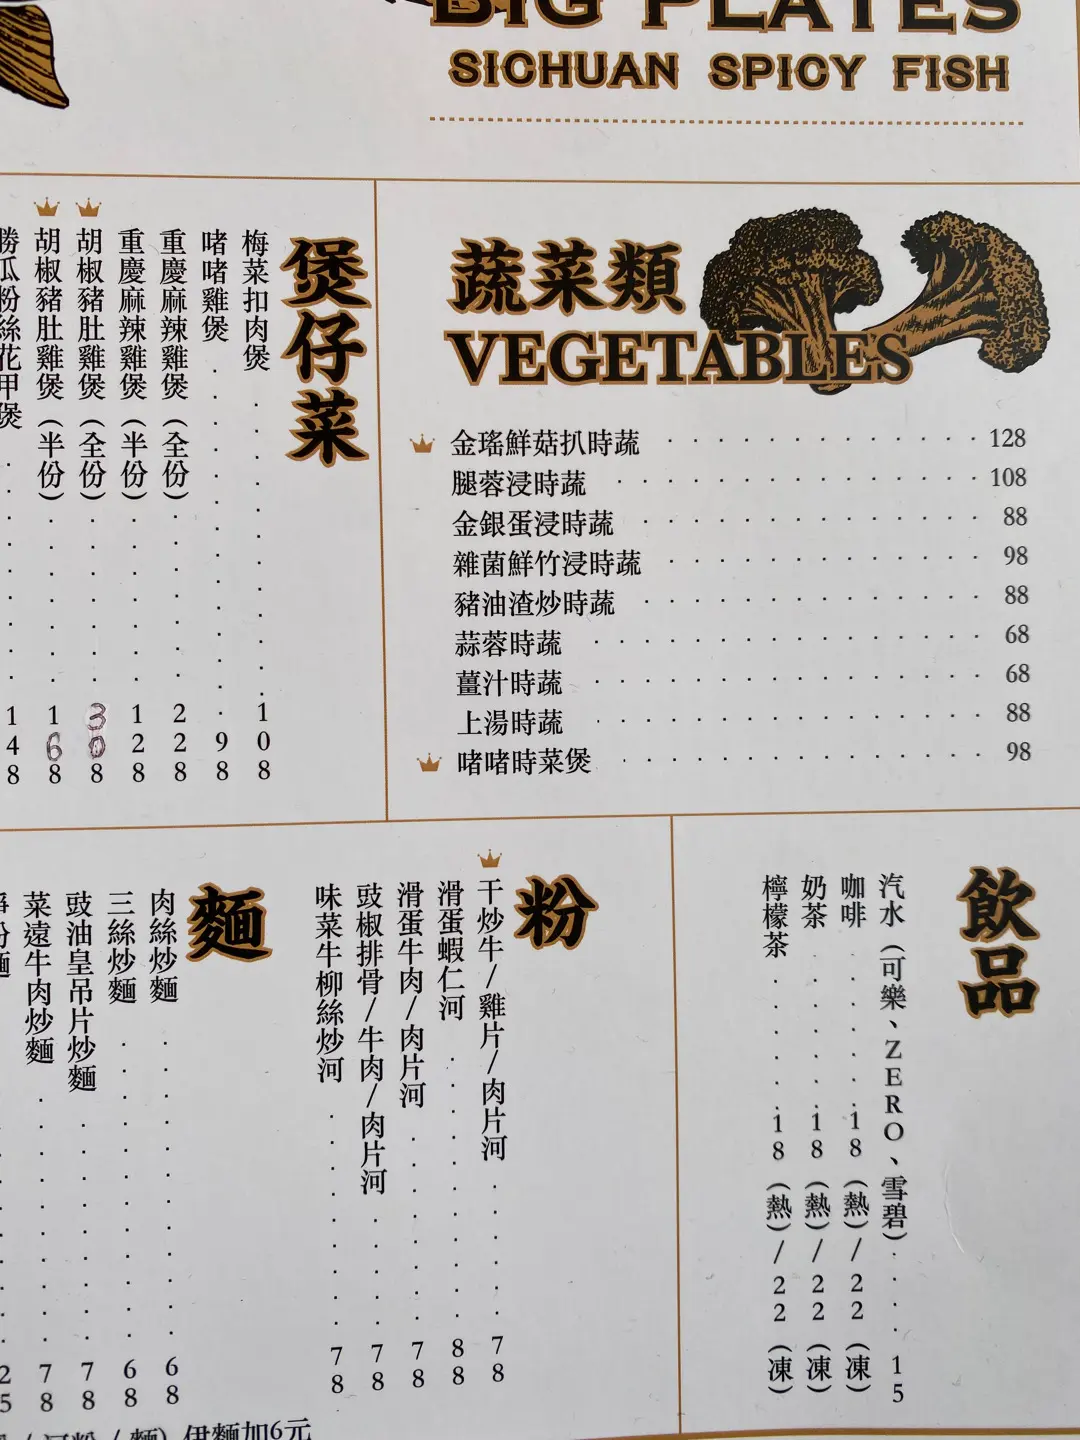 BIG PLATES
SICHUAN SPICY FISH
煲仔菜
梅菜扣肉煲 108
啫啫雞煲 98
重慶麻辣雞煲(全份) 228
重慶麻辣雞煲(半份) 128
胡椒豬肚雞煲(全份) 308
胡椒豬肚雞煲(半份) 168
勝瓜粉絲花甲煲 148
蔬菜類
VEGETABLES
金瑤鮮菇扒時蔬 128
腿蓉浸時蔬 108
金銀蛋浸時蔬 88
雜菌鮮竹浸時蔬 98
豬油渣炒時蔬 88
蒜蓉時蔬 68
薑汁時蔬 68
上湯時蔬 88
啫啫時菜煲 98
飲品
汽水(可樂、ZERO、雪碧) 15
咖啡 18(熱)/22(凍)
奶茶 18(熱)/22(凍)
檸檬茶 18(熱)/22(凍)
粉
干炒牛/雞片/肉片河 78
滑蛋蝦仁河 88
滑蛋牛肉/肉片河 78
豉椒排骨/牛肉/肉片河 78
味菜牛柳絲炒河 78
麵
肉絲炒麵 68
三絲炒麵 68
豉油皇吊片炒麵 78
菜遠牛肉炒麵 78
粉麵 25
/河粉/麵) 伊麵加6元